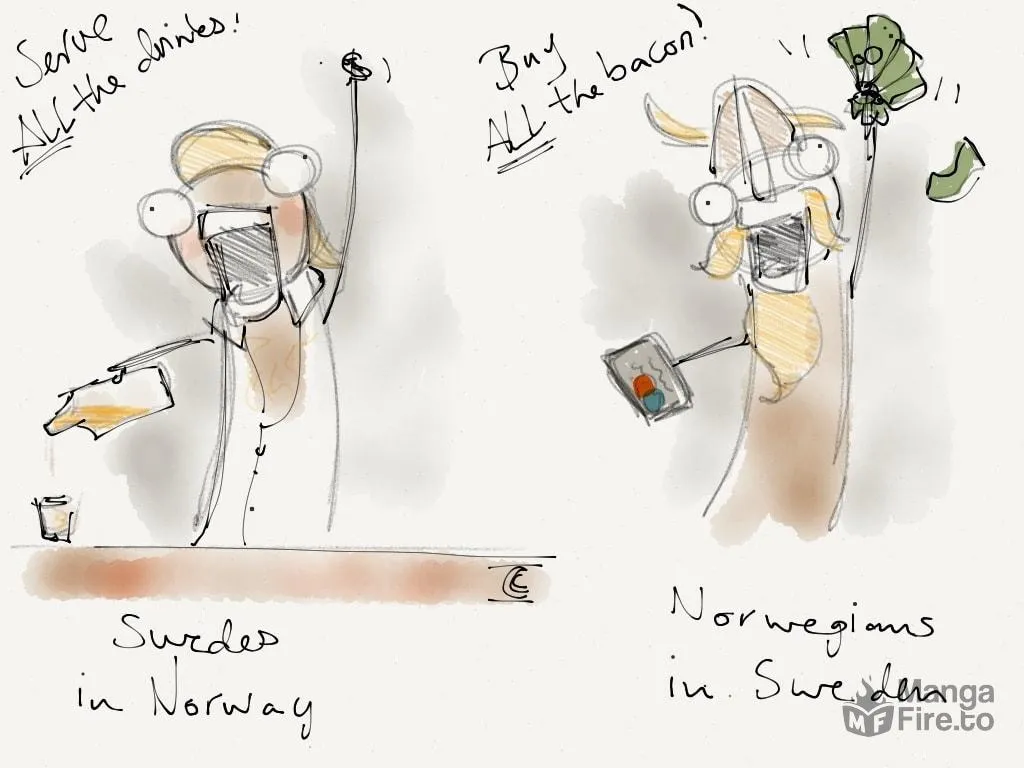 Serve
ALL the drinks!
Buy
ALL the bacon!
Swedes
in Norway
Norwegians
in Sweden
Manga
MF Fire.to